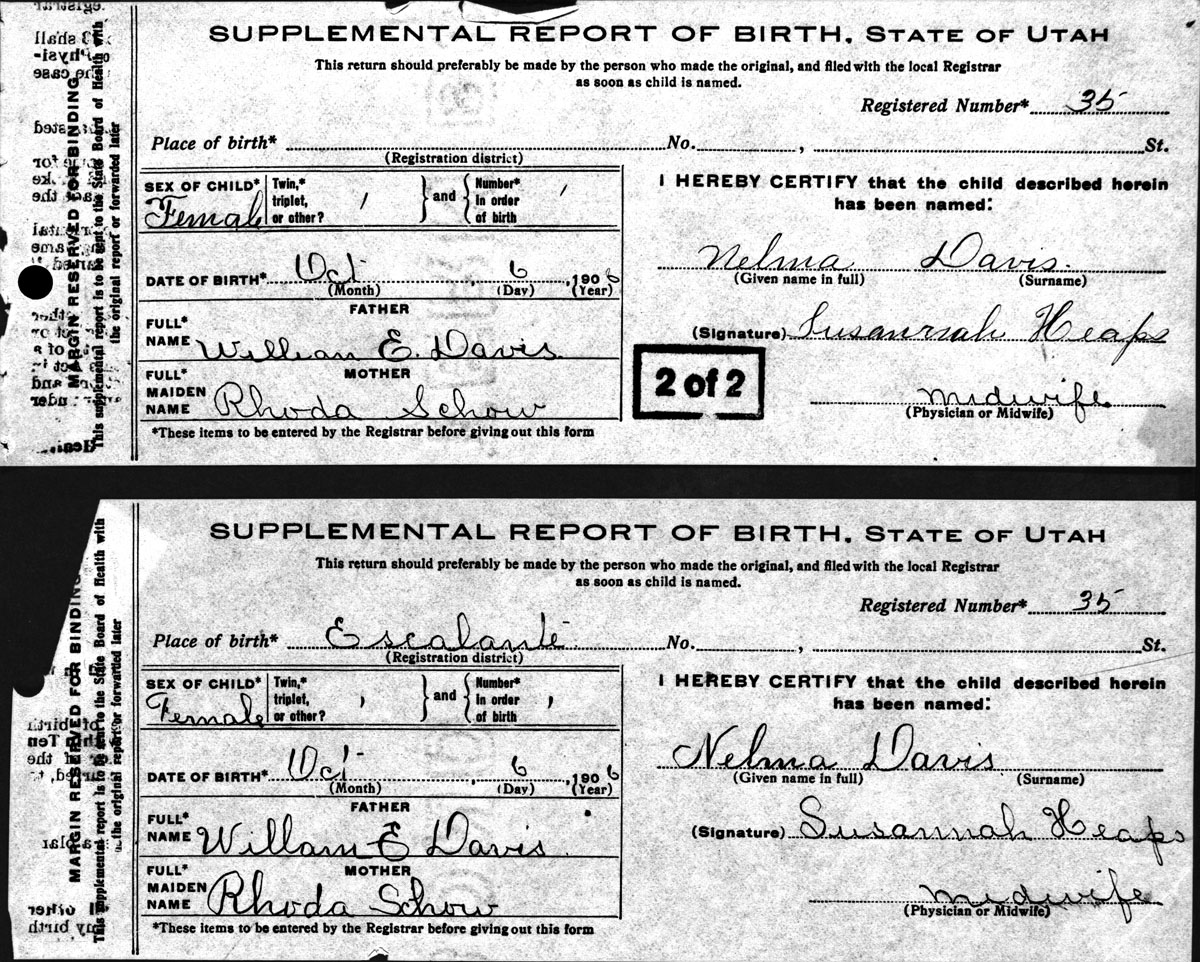 SUPPLEMENTAL REPORT OF BIRTH, STATE OF UTAH
This return should preferably be made by the person who made the original, and filed with the local Registrar
as soon as child is named.
Registered Number* 35
Place of birth* No. , St.
(Registration district)
SEX OF CHILD* Female Twin,* triplet, or other? ' } and { Number* in order of birth '
I HEREBY CERTIFY that the child described herein
has been named:
Nelma Davis.
(Given name in full) (Surname)
DATE OF BIRTH* Oct 6, 1906
(Month) (Day) (Year)
FATHER
FULL* NAME William E. Davis.
(Signature) Susannah Heaps
MOTHER
FULL* MAIDEN NAME Rhoda Schow
2 of 2
midwife
(Physician or Midwife)
*These items to be entered by the Registrar before giving out this form
MARGIN RESERVED FOR BINDING
This supplemental report is to be sent to the State Board of Health with
the original report or forwarded later
SUPPLEMENTAL REPORT OF BIRTH, STATE OF UTAH
This return should preferably be made by the person who made the original, and filed with the local Registrar
as soon as child is named.
Registered Number* 35
Place of birth* Escalante No. , St.
(Registration district)
SEX OF CHILD* Female Twin,* triplet, or other? ' } and { Number* in order of birth '
I HEREBY CERTIFY that the child described herein
has been named:
Nelma Davis
(Given name in full) (Surname)
DATE OF BIRTH* Oct 6, 1906
(Month) (Day) (Year)
FATHER
FULL* NAME Willam E Davis.
(Signature) Susannah Heaps
MOTHER
FULL* MAIDEN NAME Rhoda Schow
midwife
(Physician or Midwife)
*These items to be entered by the Registrar before giving out this form
MARGIN RESERVED FOR BINDING
This supplemental report is to be sent to the State Board of Health with
the original report or forwarded later